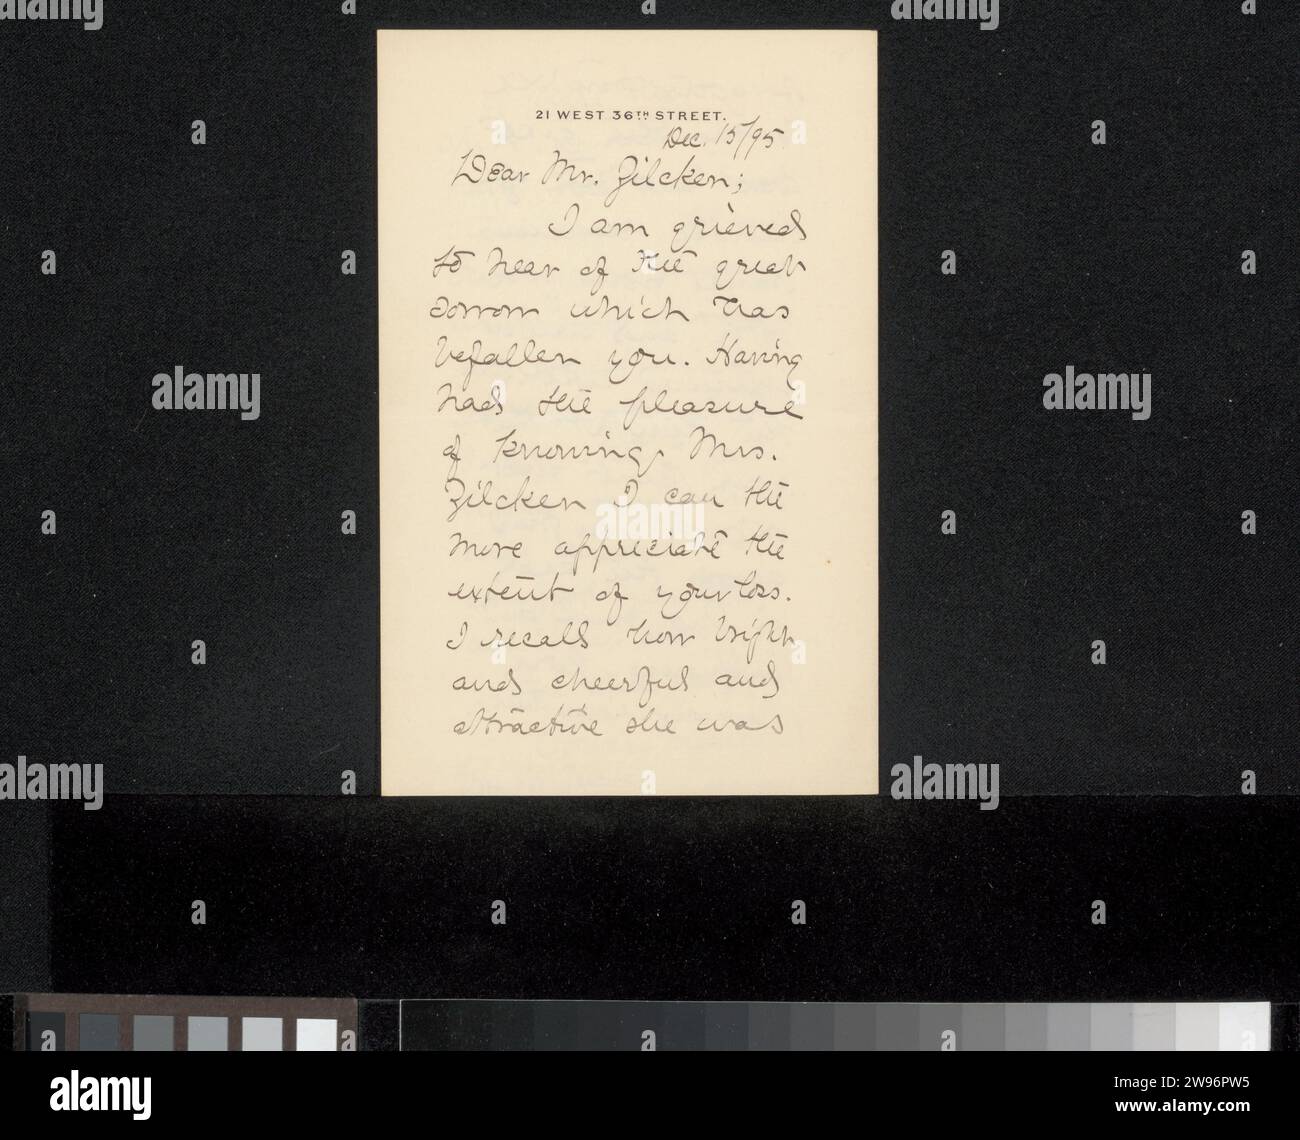 21 WEST 36TH STREET.
Dec. 15/95
Dear Mr. Zilcken;
I am grieved
to hear of the great
sorrow which has
befallen you. Having
had the pleasure
of knowing Mrs.
Zilcken I can the
more appreciate the
extent of your loss.
I recall how bright
and cheerful and
attractive she was
alamy
Image ID: 2W96PW5
www.alamy.com